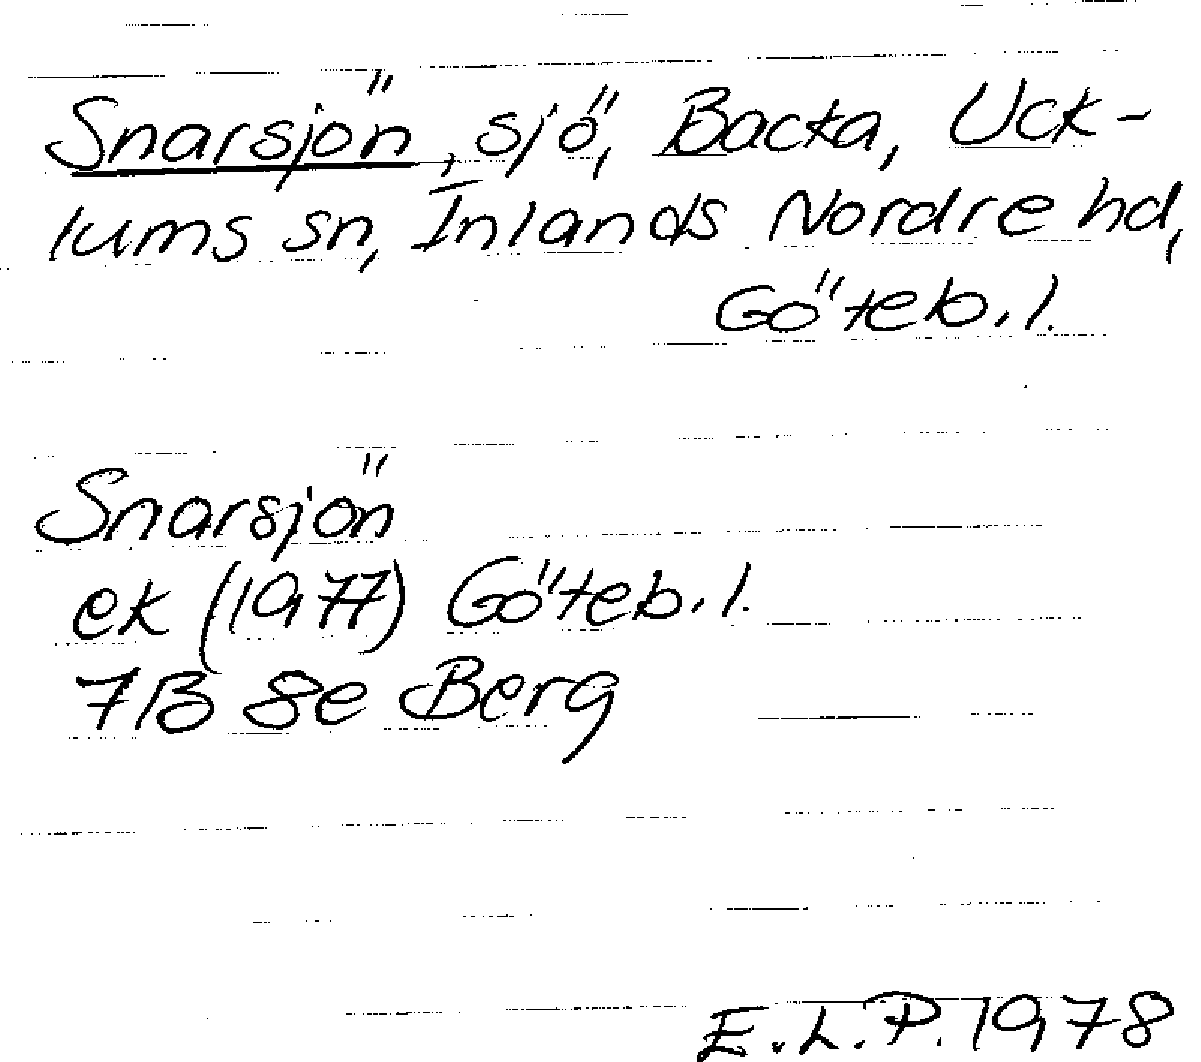 Snarsjön, sjö, Backa, Uck-
lums sn, Inlands Nordre hd,
Göteb.l.
Snarsjön
ek (1977) Göteb.l.
7B 8e Berg
E.L.P. 1978